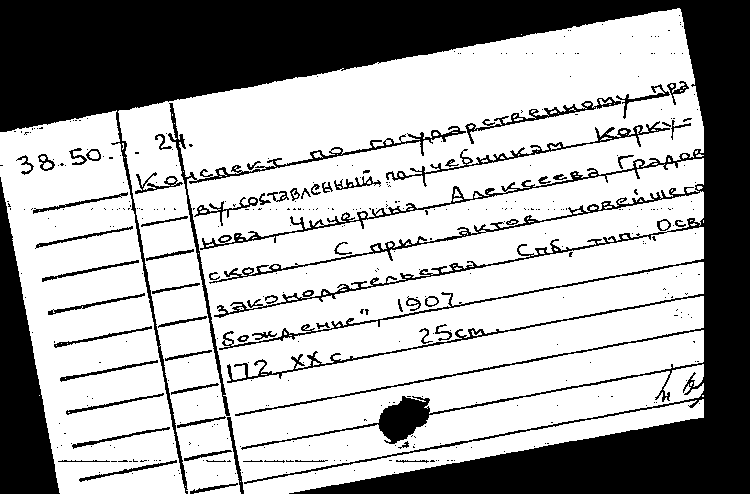 38.50.7. 24.
Конспект по государственному пра-
ву, составленный, по учебникам Корку=
нова, Чичерина, Алексеева, Градов
ского. С прил. актов новейшего
законодательства. Спб, тип. „Осво
бождение", 1907.
172, XX с. 25см.